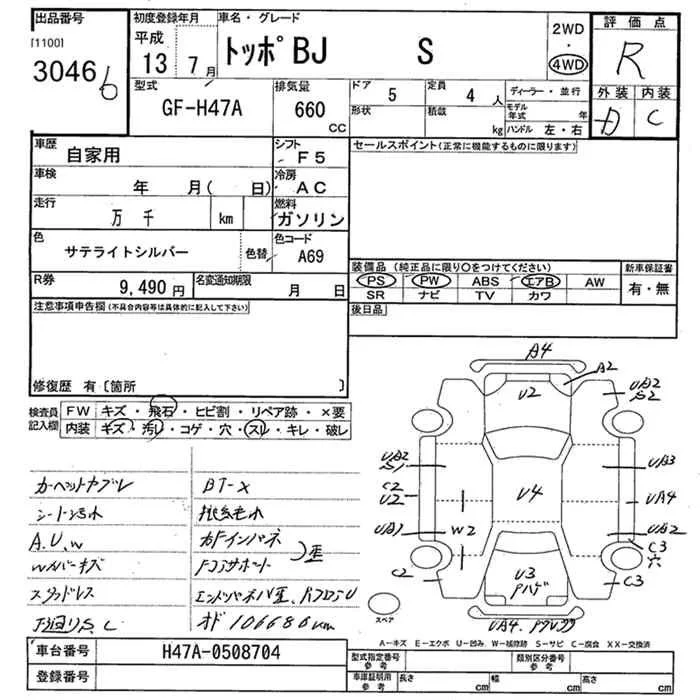 出品番号
[1100]
3046 6
初度登録年月
平成
13 7 月
車名・グレード
トッポBJ S
2WD
・
4WD
評価点
R
外装 内装
D C
型式
GF-H47A
排気量
660
CC
ドア
5
定員
4 人
ディーラー・並行
形状
積載
kg
モデル年式 年
ハンドル 左・右
車歴
自家用
シフト
F5
セールスポイント(正常に機能するものに限ります)
車検
年 月( 日)
冷房
AC
走行
万 千 km
燃料
ガソリン
色
サテライトシルバー
色替
色コード
A69
R券
9,490 円
名変通知期限
月 日
装備品(純正品に限り○をつけてください)
PS PW ABS エアB AW
SR ナビ TV カワ
新車保証書
有・無
後日品
注意事項申告欄(不具合内容等は具体的に記入して下さい)
修復歴 有〔箇所 〕
検査員記入欄
FW キズ・飛石・ヒビ割・リペア跡・×要
内装 キズ・汚レ・コゲ・穴・スレ・キレ・破レ
カーペットヤブレ
シート汚れ
A.U.W
Wカバーキズ
スタッドレス
下廻りS.C
BT-X
オド106686km
A4
A2
U2
UA2
S2
UA2
S1
UA3
C2
U2
U4
UA4
UA1
W2
UA2
C3
穴
C2
U3
C3
UA4.
スペア
A-キズ E-エクボ U-凹み W-補修跡 S-サビ C-腐食 XX-交換済
車台番号
H47A-0508704
登録番号
型式指定番号
参考
類別区分番号
参考
車庫証明用
参考
長さ cm
幅 cm
高さ cm